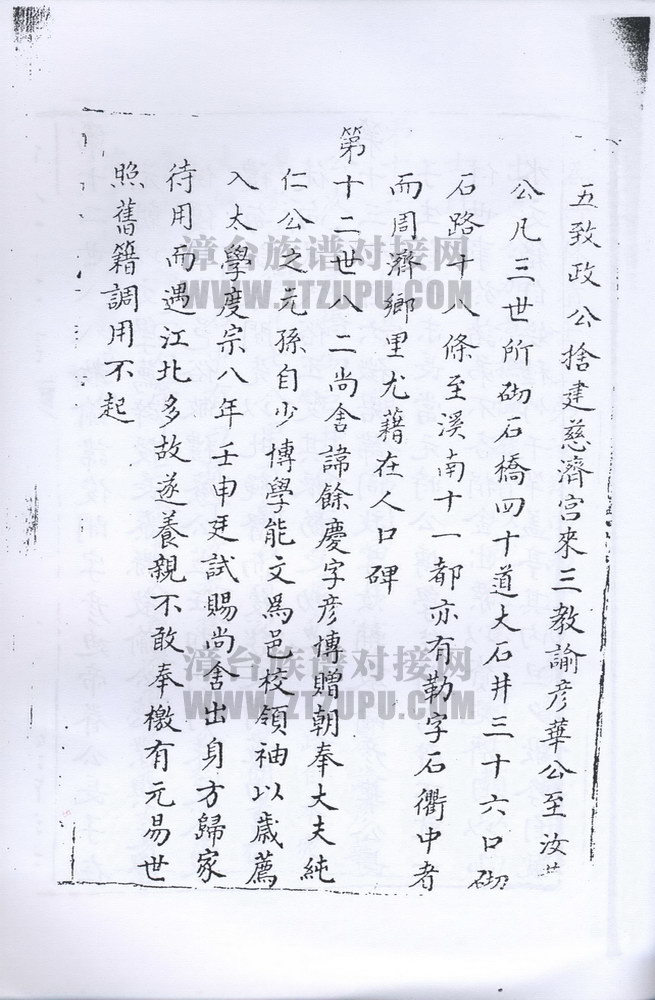 五致政公捨建慈濟宮來三教諭彥華公至汝
公凡三世所砌石橋四十道大石井三十六口砌
石路十八條至溪南十一都亦有勒字石衢中者
而周濟鄉里尤藉在人口碑
第十二世八二尚舍諱餘慶字彥博贈朝奉大夫純
仁公之元孫自少博學能文爲邑校領袖以歲薦
入太學度宗八年壬申廷試賜尚舍出身方歸家
待用而遇江北多故遂養親不敢奉檄有元易世
照舊籍調用不起
漳台族谱对接网
WWW.ZTZUPU.COM
漳台族谱对接网
WWW.ZTZUPU.COM